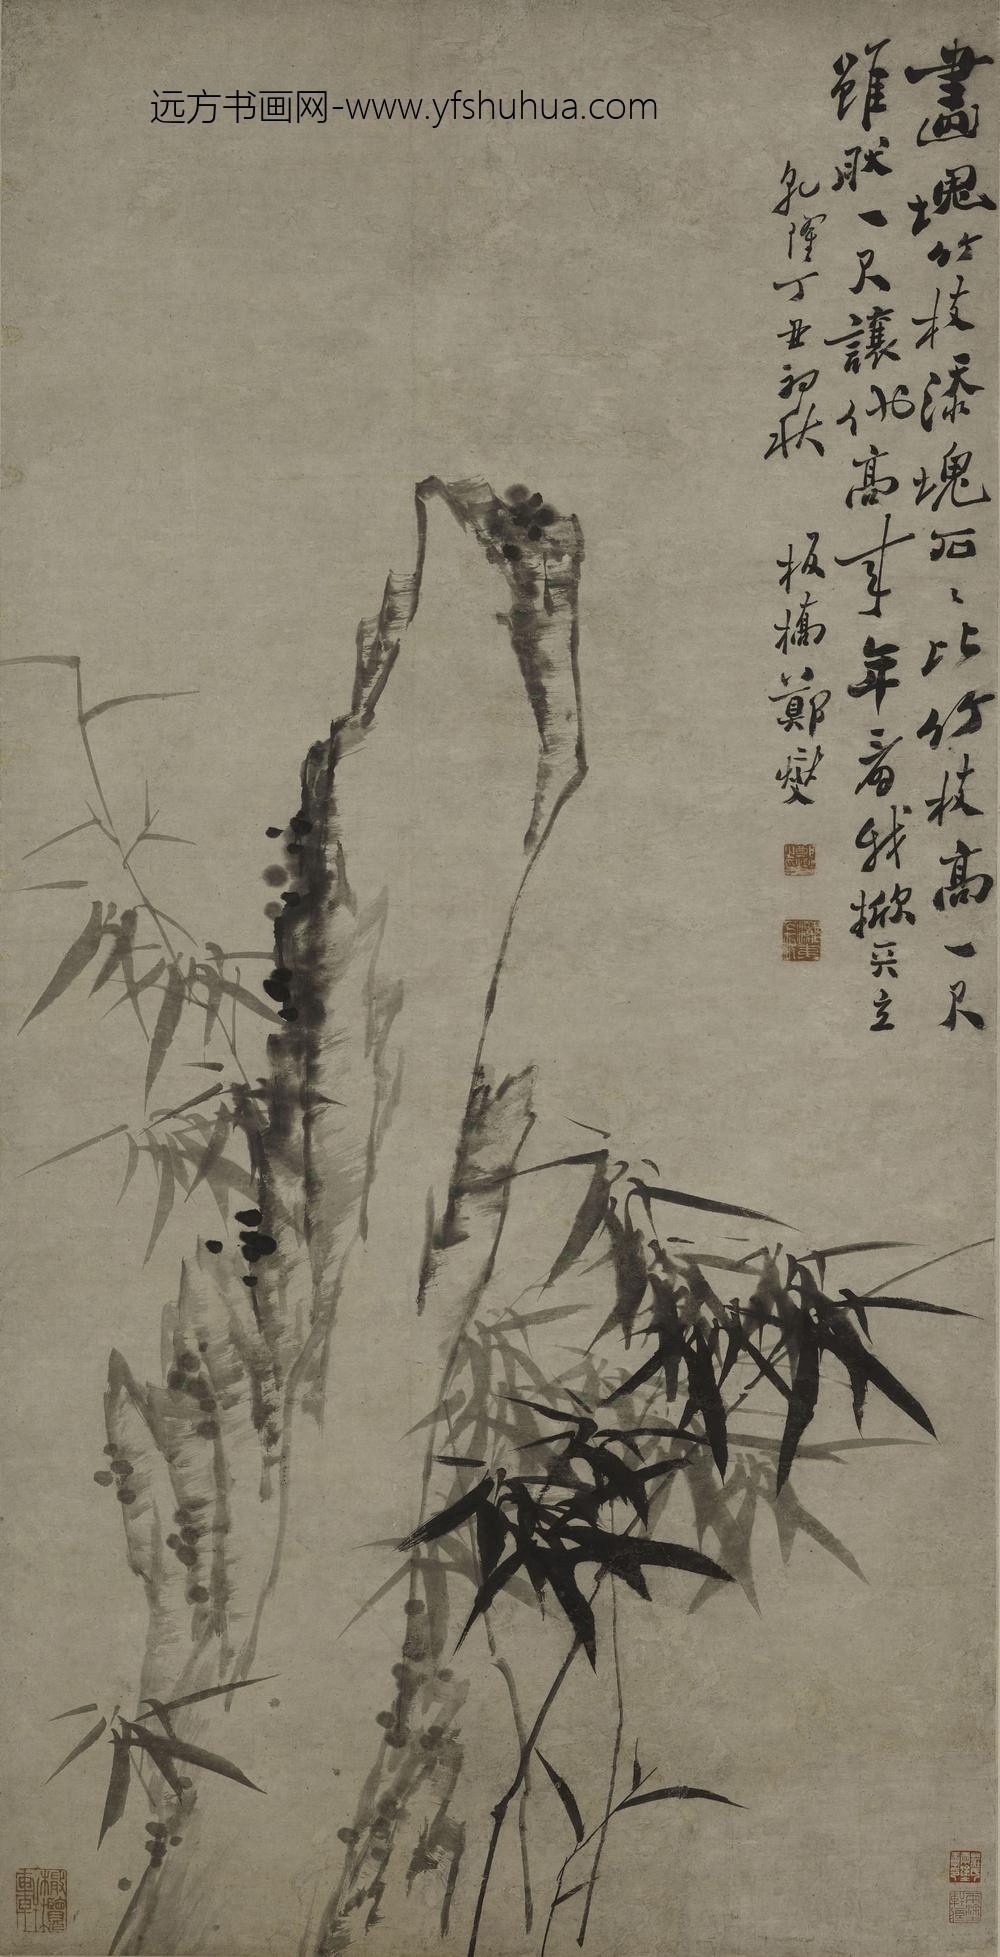 远方书画网-www.yfshuhua.com
畫塊竹枝添塊石石比竹枝高一尺
雖然一尺讓他高来年看我掀天立
乾隆丁丑初秋
板橋鄭燮